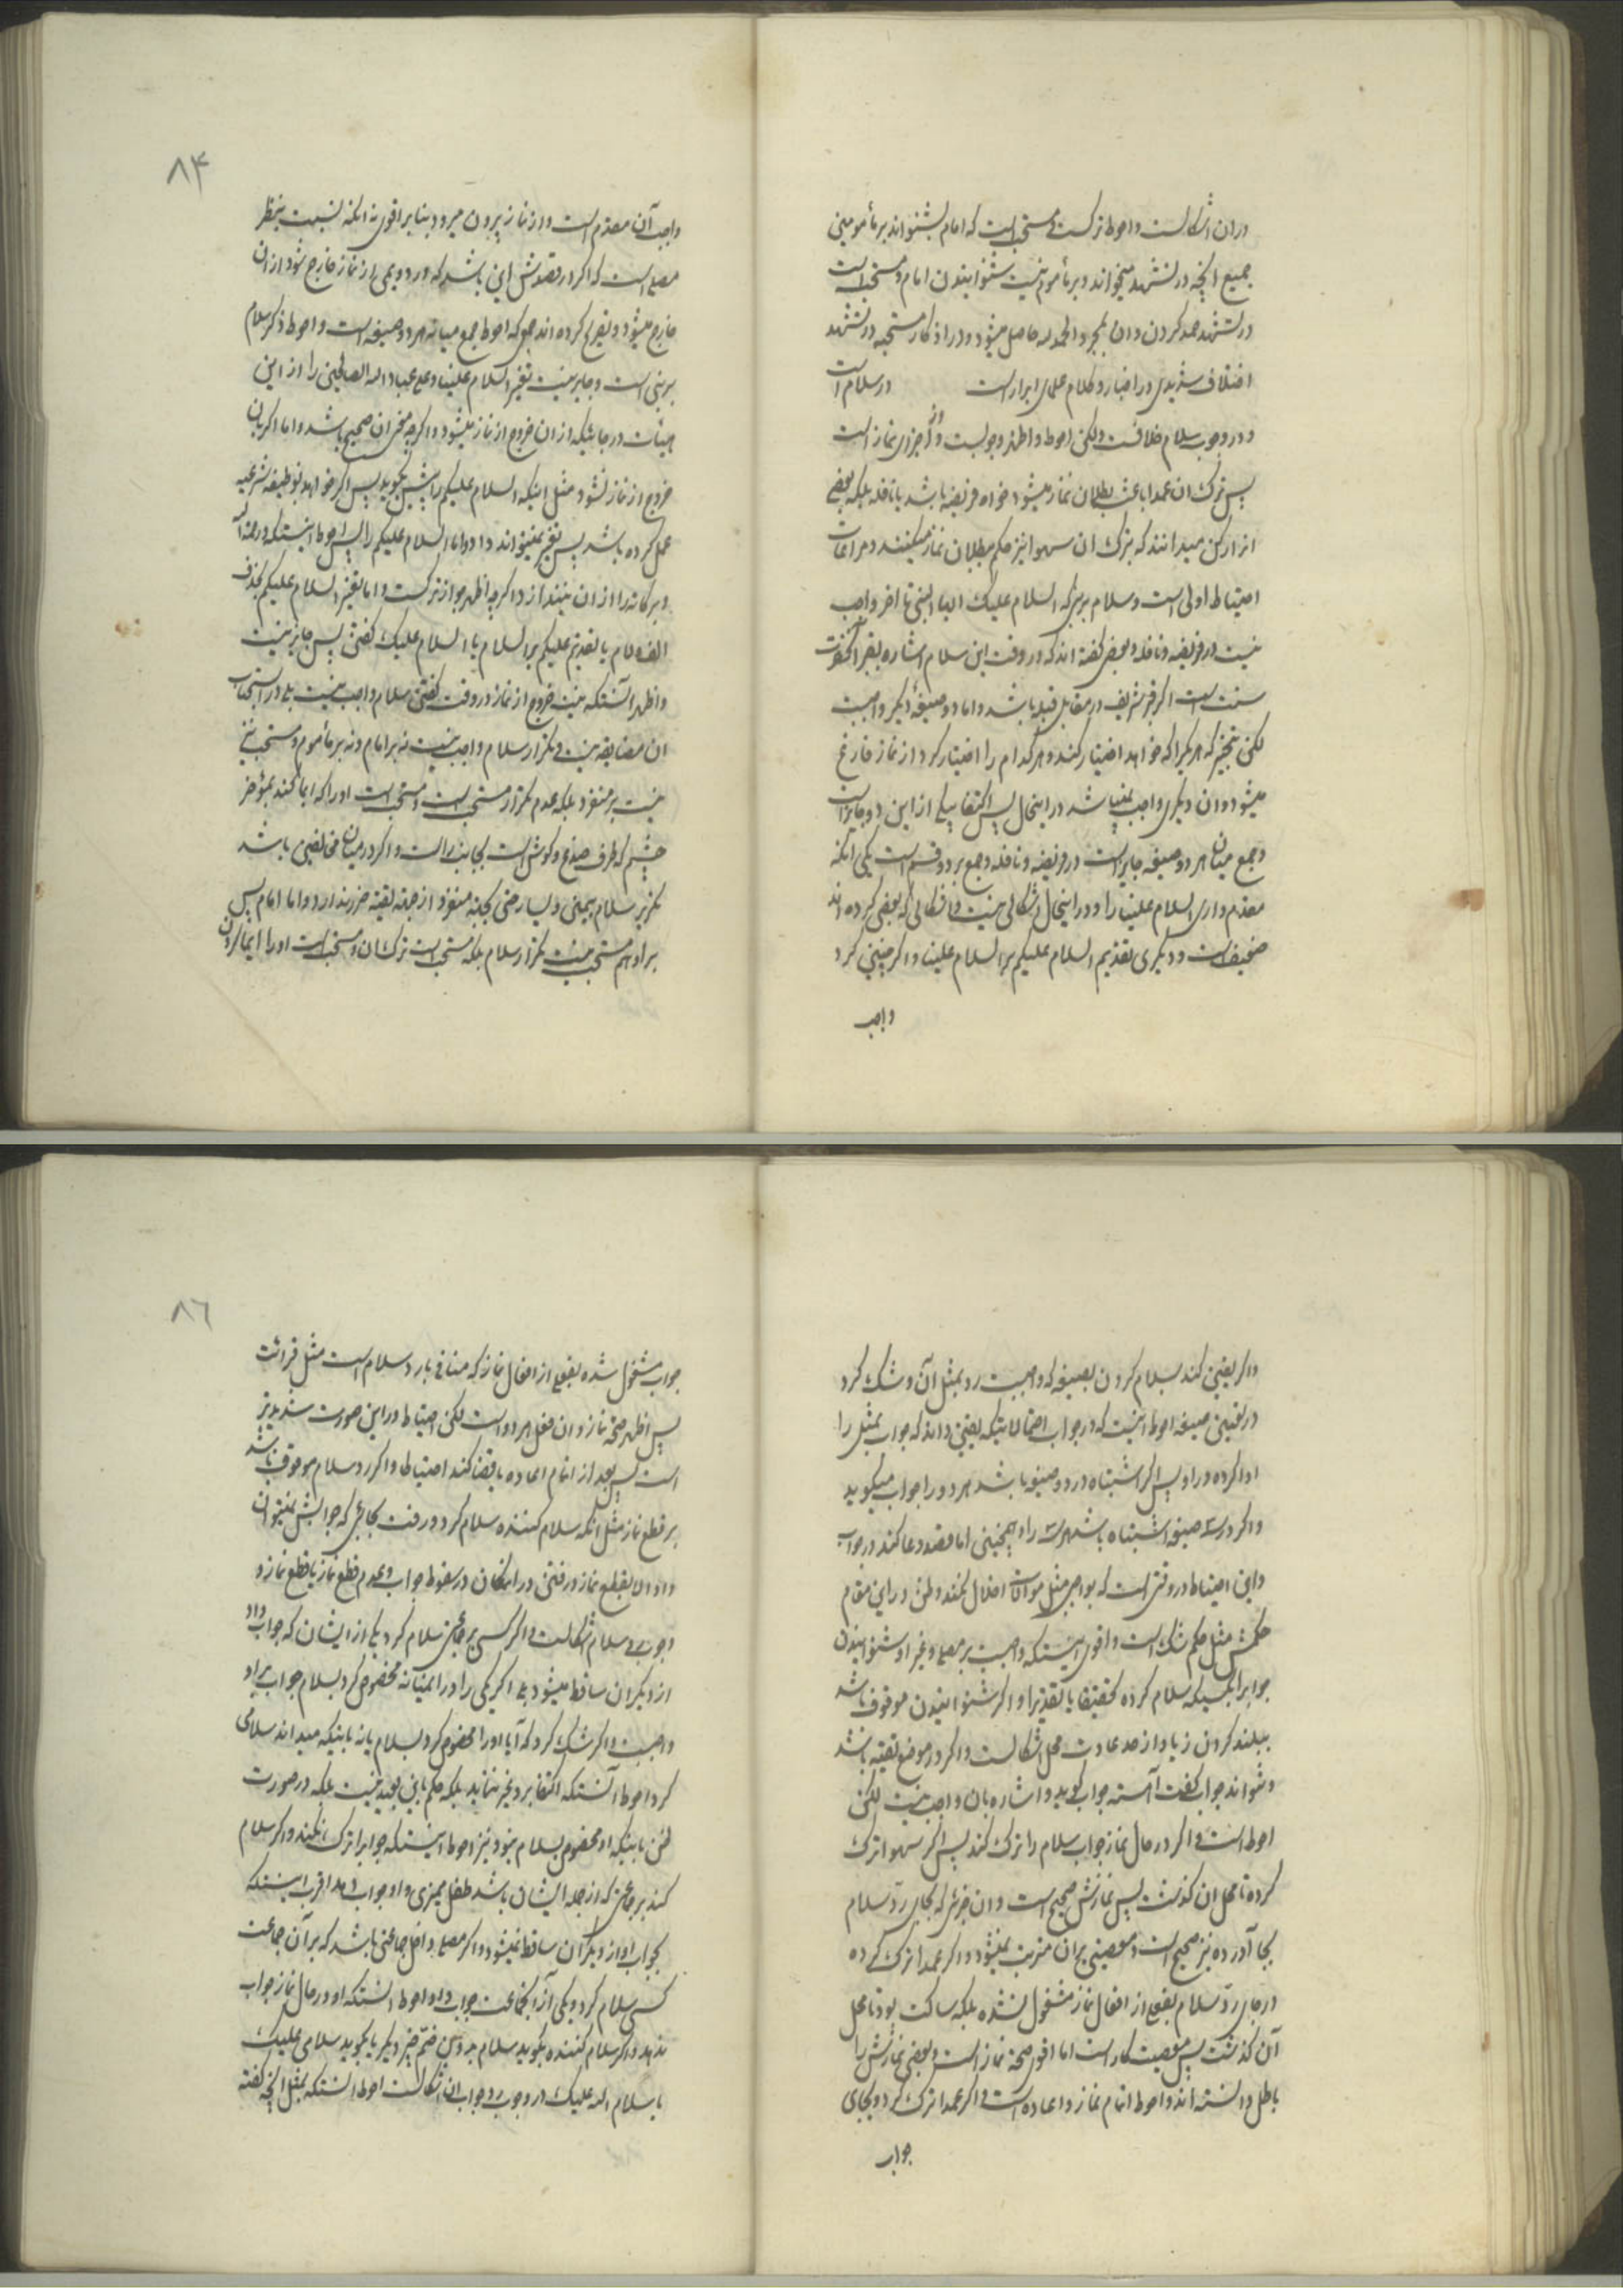 در ان اشکالست و احوط ترکست و مستحب است که امام بشنواند بر مأمومین
جمیع انچه در تشهد میخواند و بر مأموم نیست شنوانیدن امام و مستحب است
در تشهد حمد کردن و ان بمجرد الحمد لله حاصل میشود و در اذکار مستحبه در تشهد
اختلاف شدیدی در اخبار و کلام علمای ابرار است در سلام است
و در وجوب سلام خلافست ولکن احوط و اظهر وجوبست و از اجزای نماز است
پس ترک ان عمدا باعث بطلان نماز میشود خواه فریضه باشد یا نافله بلکه بعضی
انرا رکن میدانند که بترک ان سهوا نیز حکم ببطلان نماز میکنند و مراعات
احتیاط اولی است و سلام بر نبی که السلام علیک ایها النبی تا اخر واجب
نیست در فریضه و نافله و بعضی گفته اند که در وقت این سلام اشاره بقبر آنحضرت
سنت است اگر قبر شریف در مقابل قبله باشد و اما دو صیغهٔ دیگر واجبست
لکن بتخییر که هر یکرا که خواهد اختیار کند و هر کدام را اختیار کرد از نماز فارغ
میشود و ان دیگری واجب نمیباشد در اینحال پس اکتفا بیکی از این دو جایز است
و جمع میان هر دو صیغه جایز است در فریضه و نافله و جمع بر دو قسم است یکی آنکه
مقدم داری السلام علینا را و در اینحال اشکالی نیست و اشکالی که بعضی کرده اند
ضعیف است و دیگری تقدیم السلام علیکم بر السلام علینا و اگر چنین کرد
واجب
۸۴
واجب آن مقدم است و از نماز بیرون میرود بنا بر اقوی نه انکه نسبت بنظر
مصلی است که اگر در قصدش این باشد که در دویمی از نماز خارج شود از ان
خارج میشود و تصریح کرده اند جمعی که احوط جمع میانه هر دو صیغه است و احوط ذکر سلام
بر نبی است و جایز نیست تغییر السلام علینا و علی عباد الله الصالحین را از این
هیئات در جائیکه از ان خروج از نماز میشود و اگر چه صحیح باشد و اما اگر بان
خروج از نماز نشود مثل اینکه السلام علیکم را پیش بگوید پس اگر خواهد بوظیفه شرعیه
عمل کرده باشد پس تغییر نمیتواند داد و اما السلام علیکم را پس احوط اینستکه و رحمة الله
و برکاته را از ان نیندازد و اگر چه اظهر جواز ترکست و اما تغییر السلام علیکم بحذف
الف و لام یا بتقدیم علیکم بر السلام یا السلام علیک گفتن پس جایز نیست
و اظهر آنستکه نیت خروج از نماز در وقت گفتن سلام واجب نیست بلی در استحباب
ان مضایقه نیست و تکرار سلام واجب نیست نه بر امام و نه بر مأموم و مستحب نیز
نیست بر منفرد بلکه عدم تکرار مستحب است و مستحب است او را که ایما کند بمؤخر
چشم که طرف صدغ و گوش است بجانب راست و اگر در میان مخالفین باشد
تکریر سلام بیمین و یسار حتی بجهة منفرد از جهة تقیه ضرر ندارد و اما امام پس
بر او هم مستحب نیست تکرار سلام بلکه مستحب است ترک ان و مستحب است او را ایما کردن
و اگر یقین کند بسلام کردن بصیغه که واجبست رد بمثل آن و شک کرد
در تعیین صیغه احوط اینست که در جواب احتمالاتیکه یقین داند که جواب بمثل را
ادا کرده در او پس اگر اشتباه در دو صیغه باشد هر دو را جواب میگوید
و اگر در سه صیغه اشتباه باشد هر سه را و همچنین اما قصد دعا کند در جواب
و این احتیاط در وقتی است که بواجبی مثل موالات اخلال نکند و ظن در این مقام
حکمش مثل حکم شک است و اقوی اینستکه واجبست بر مصلی و غیر او شنوانیدن
جوابرا بکسیکه سلام کرده تحقیقا یا تقدیرا و اگر شنوانیدن موقوف باشد
ببلند کردن زیاد از حد عادت محل اشکالست و اگر در موضع تقیه باشد
و نتواند جواب گفت آهسته جواب گوید و اشاره بان واجب نیست لکن
احوط است و اگر در حال نماز جواب سلام را ترک کند پس اگر سهوا ترک
کرده تا محل ان گذشت پس نمازش صحیح است و ان جزئی که بجای رد سلام
بجا آورده نیز صحیح است و معصیتی بر ان مترتب نمیشود و اگر عمدا ترک کرده
در جای رد سلام بفعلی از افعال نماز مشغول نشده بلکه ساکت بود تا محل
آن گذشت پس معصیت کار است اما اقوی صحة نماز است و بعضی نمازش را
باطل دانسته اند و احوط اتمام نماز و اعاده است و اگر عمدا ترک کرد و بجای
جواب
۸۶
جواب مشغول شده بفعلی از افعال نماز که منافی با رد سلام است مثل قرائت
پس اظهر صحة نماز و ان فعل هر دو است لکن احتیاط در این صورت شدیدتر
است پس بعد از اتمام اعاده یا قضا کند احتیاطا و اگر رد سلام موقوف باشد
بر قطع نماز مثل انکه سلام کننده سلام کرد و رفت بجائی که جوابش نمیتوان
داد الا بقطع نماز و رفتن در امکان در سقوط جواب و عدم قطع نماز یا قطع نماز و
وجوب رد سلام اشکالست و اگر کسی بر جماعتی سلام کرد یکی از ایشان که جواب داد
از دیگران ساقط میشود بلی اگر یکی را در انمیانه مخصوص کرد بسلام جواب بر او
واجبست و اگر شک کرد که آیا او را مخصوص کرد بسلام یا نه با اینکه میداند سلامی
کرد احوط آنستکه اکتفا برد غیر ننماید بلکه حکم باین بعید نیست بلکه در صورت
ظن باینکه او مخصوص بسلام نبود نیز احوط اینستکه جوابرا ترک نکند و اگر سلام
کند بر جماعتی که از جمله ایشان باشد طفل ممیزی و او جواب دهد اقرب اینستکه
بجواب او از دیگران ساقط نمیشود و اگر مصلی داخل جماعتی باشد که بر آن جماعت
کسی سلام کرد و یکی از آنجماعت جواب داد احوط آنستکه او در حال نماز جواب
ندهد و اگر سلام کننده بگوید سلام بدون ضم چیز دیگر یا بگوید سلامی علیک
یا سلام الله علیک در وجوب رد جواب ان اشکالست احوط آنستکه بمثل انچه گفته